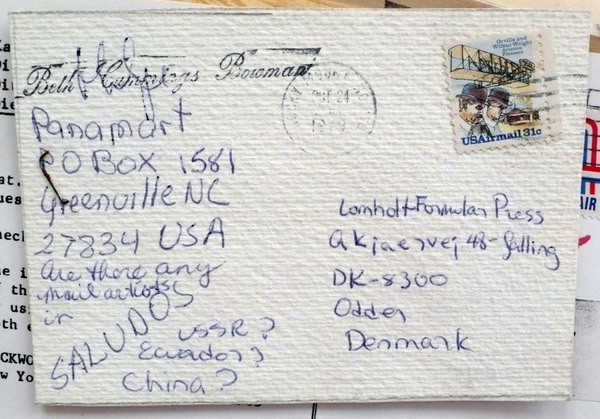 Beth Cummings Bowman
Panamart
PO Box 1581
Greenville NC
27834 USA
Are there any
mail artists
in
SALUDOS
USSR?
Ecuador?
China?
Orville and
Wilbur Wright
Aviation
Pioneers
USAirmail 31c
Lomholt Formular Press
Akjaervej 48-falling
DK-8300
Odder
Denmark